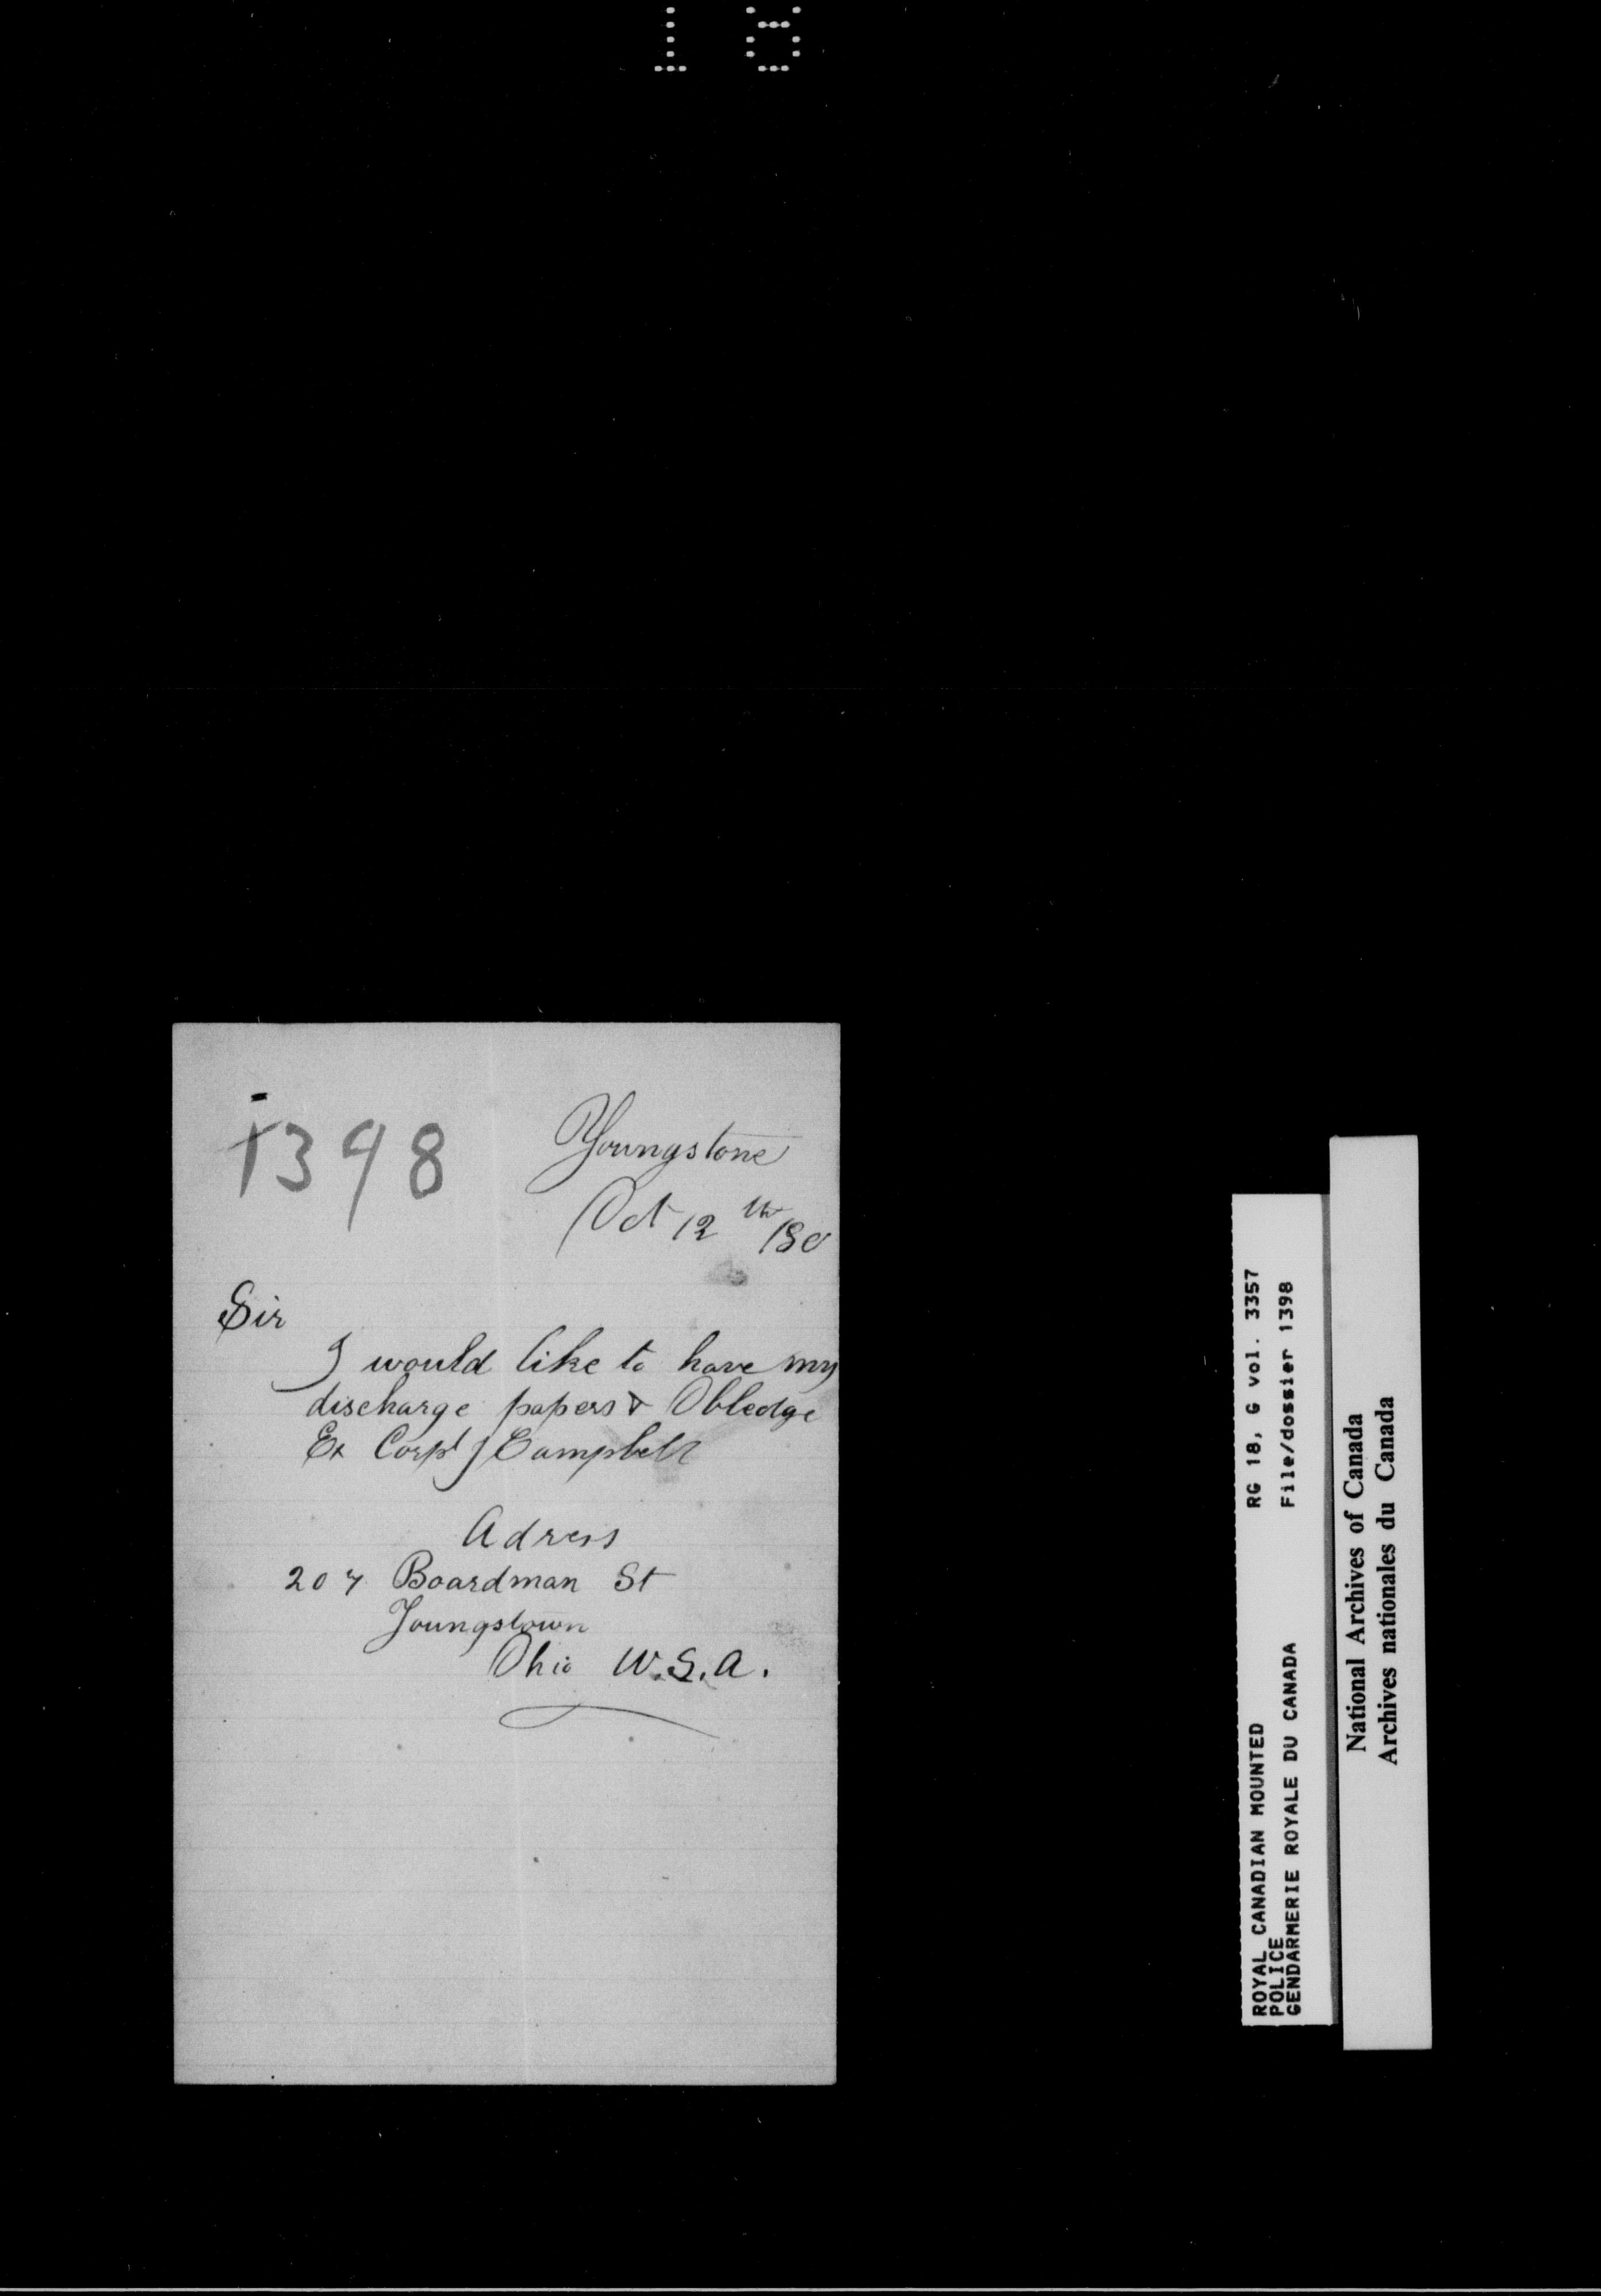 18
1398
Youngstone
Oct 12th /80
Sir
I would like to have my
discharge papers & Obledge
Ex Corpl J Campbell
Adress
207 Boardman St
Youngstown
Ohio U.S.A.
ROYAL CANADIAN MOUNTED RG 18, G vol. 3357
POLICE File/dossier 1398
GENDARMERIE ROYALE DU CANADA
National Archives of Canada
Archives nationales du Canada